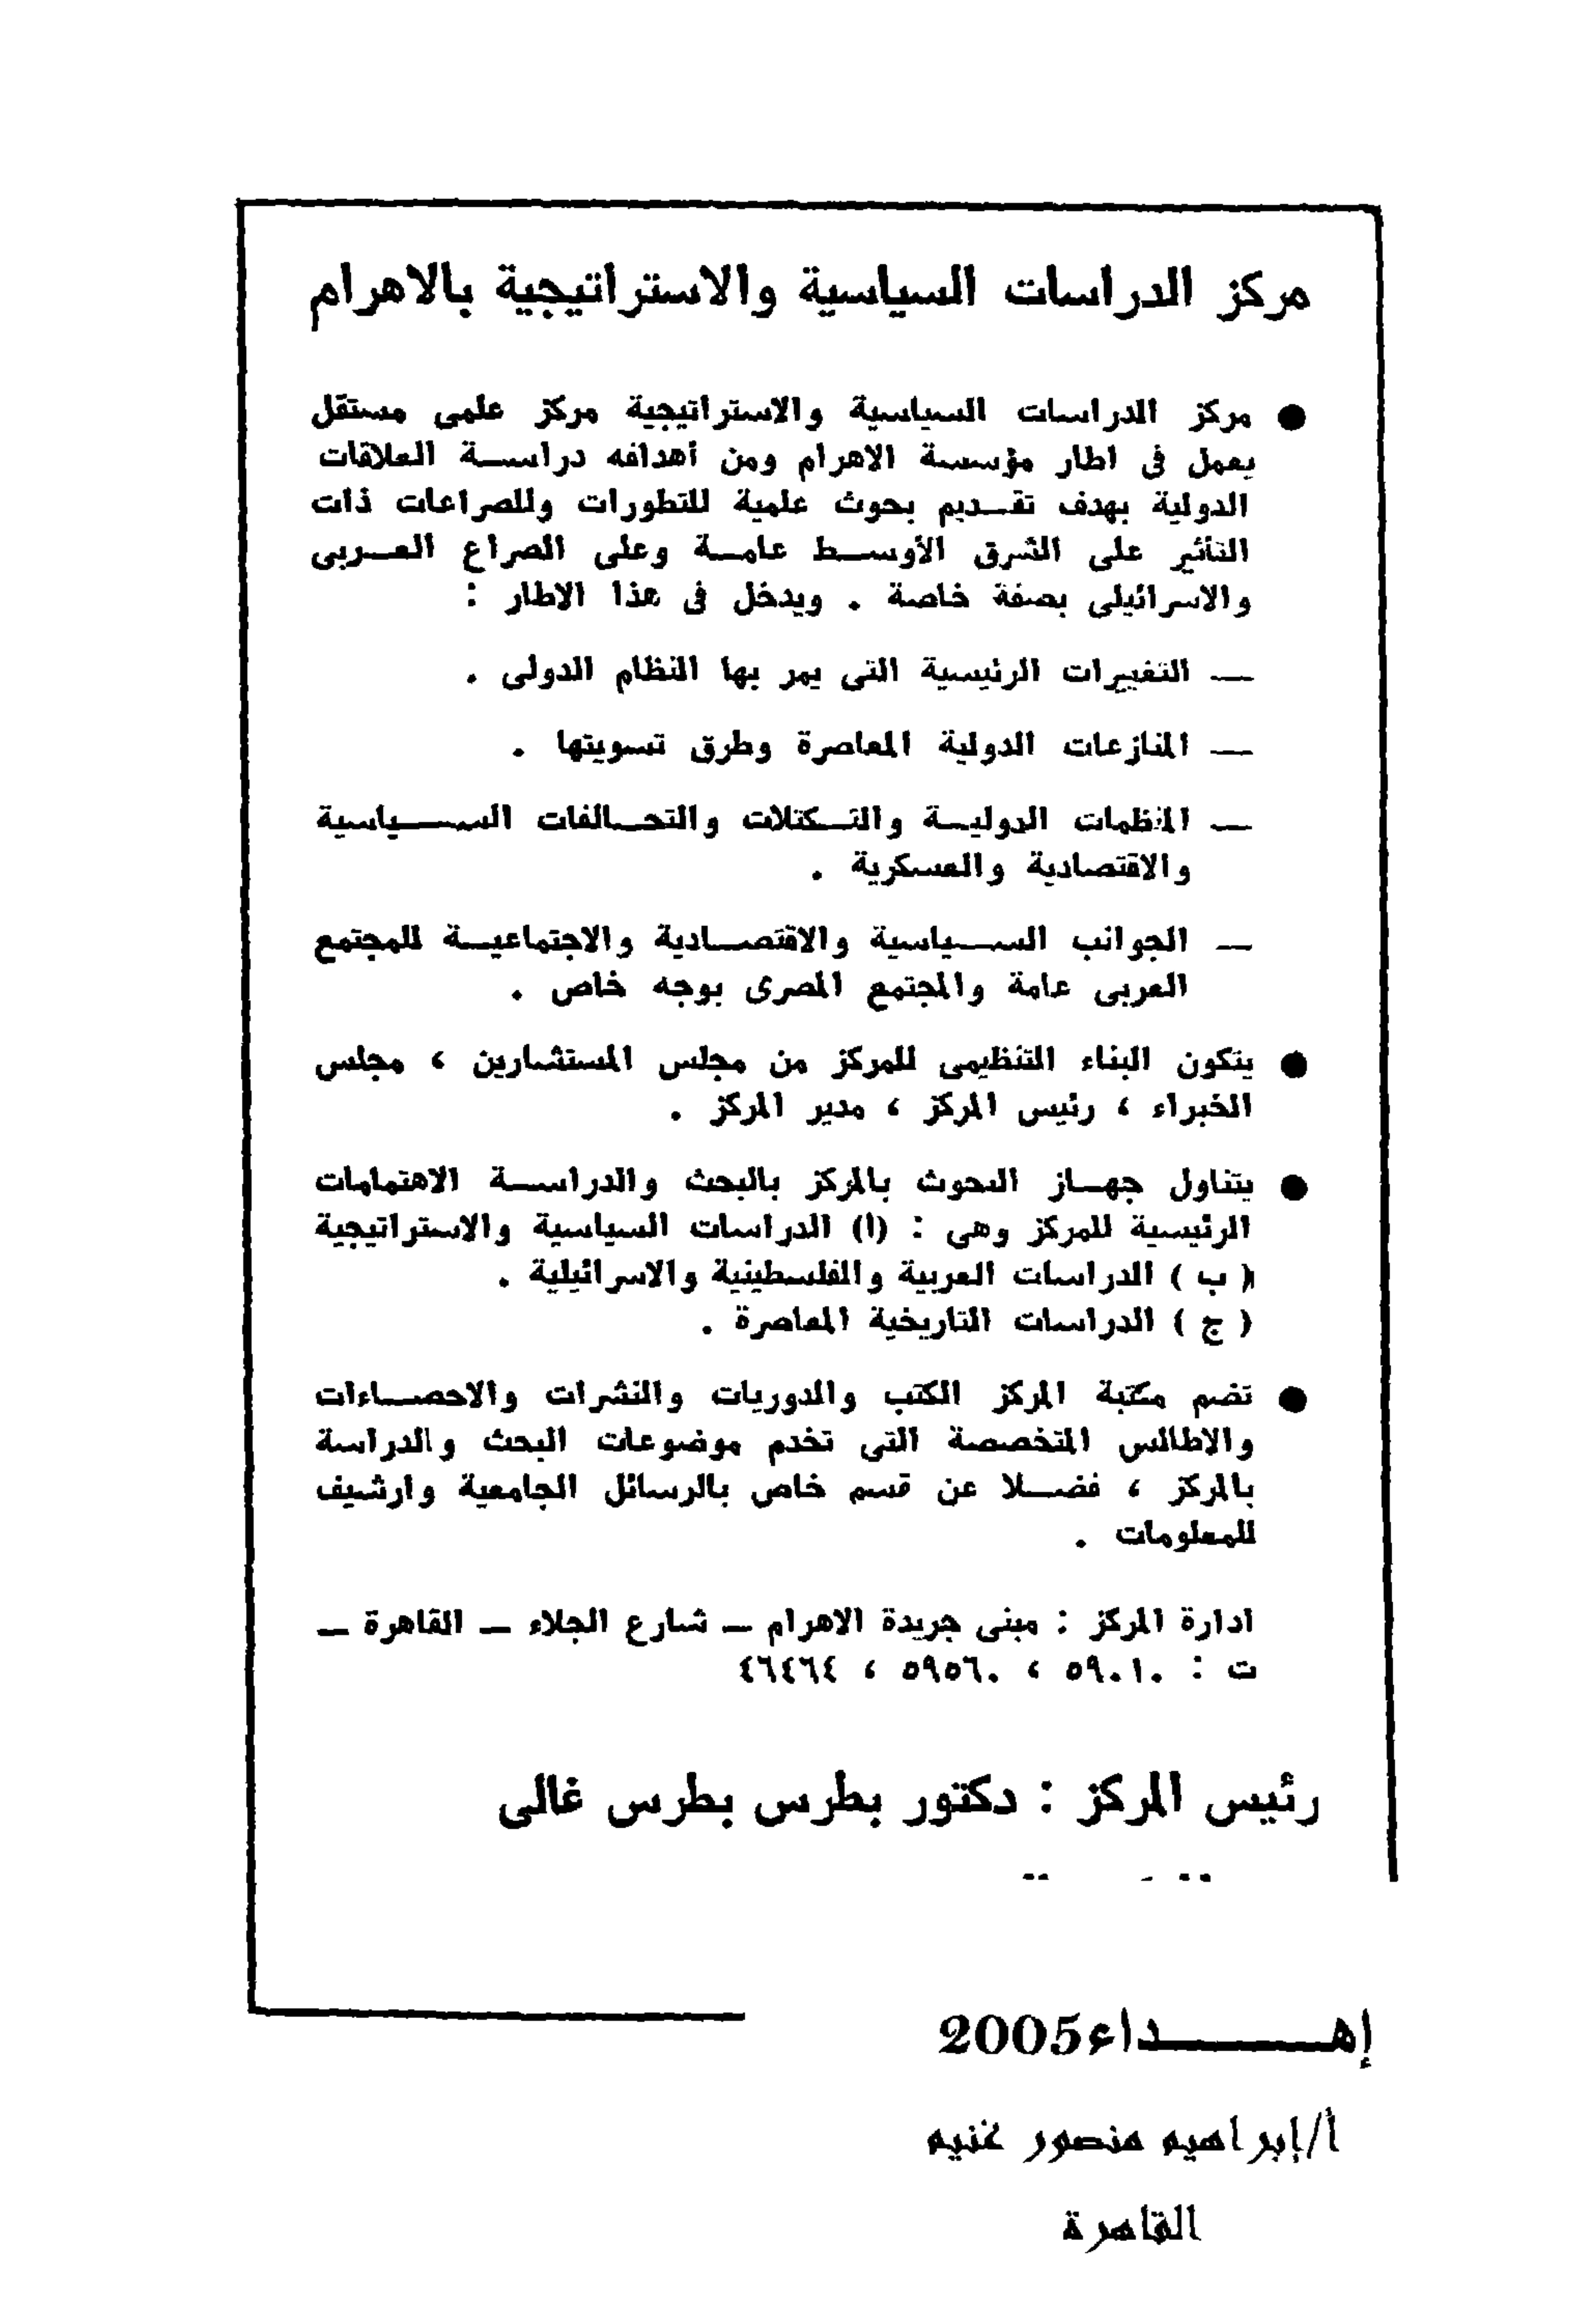 مركز الدراسات السياسية والاستراتيجية بالاهرام
● مركز الدراسات السياسية والاستراتيجية مركز علمى مستقل
يعمل فى اطار مؤسسة الاهرام ومن أهدافه دراسة العلاقات
الدولية بهدف تقديم بحوث علمية للتطورات وللصراعات ذات
التأثير على الشرق الأوسط عامة وعلى الصراع العربى
والاسرائيلى بصفة خاصة . ويدخل فى هذا الاطار :
— التغييرات الرئيسية التى يمر بها النظام الدولى .
— المنازعات الدولية المعاصرة وطرق تسويتها .
— المنظمات الدولية والتكتلات والتحالفات السياسية
والاقتصادية والعسكرية .
— الجوانب السياسية والاقتصادية والاجتماعية للمجتمع
العربى عامة والمجتمع المصرى بوجه خاص .
● يتكون البناء التنظيمى للمركز من مجلس المستشارين ، مجلس
الخبراء ، رئيس المركز ، مدير المركز .
● يتناول جهاز البحوث بالمركز بالبحث والدراسة الاهتمامات
الرئيسية للمركز وهى : (ا) الدراسات السياسية والاستراتيجية
( ب ) الدراسات العربية والفلسطينية والاسرائيلية .
( ج ) الدراسات التاريخية المعاصرة .
● تضم مكتبة المركز الكتب والدوريات والنشرات والاحصاءات
والاطالس المتخصصة التى تخدم موضوعات البحث والدراسة
بالمركز ، فضلا عن قسم خاص بالرسائل الجامعية وارشيف
للمعلومات .
ادارة المركز : مبنى جريدة الاهرام — شارع الجلاء — القاهرة —
ت : ٥٩٠١٠ ، ٥٩٥٦٠ ، ٤٦٤٦٤
رئيس المركز : دكتور بطرس بطرس غالى
إهداء2005
أ/إبراهيم منصور غنيم
القاهرة